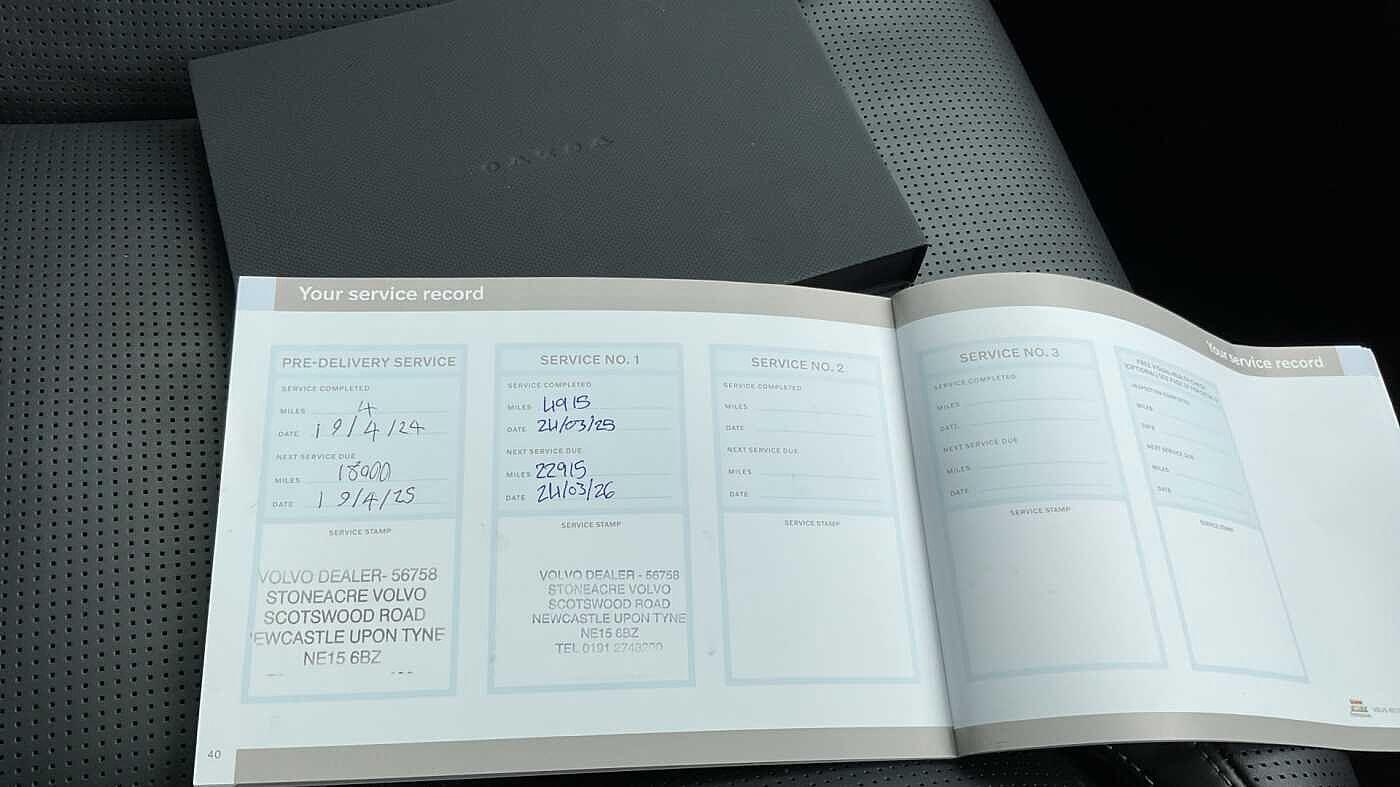 VOLVO
Your service record
PRE-DELIVERY SERVICE
SERVICE COMPLETED
MILES 4
DATE 19/4/24
NEXT SERVICE DUE
MILES 18000
DATE 19/4/25
SERVICE STAMP
VOLVO DEALER- 56758
STONEACRE VOLVO
SCOTSWOOD ROAD
NEWCASTLE UPON TYNE
NE15 6BZ
SERVICE NO. 1
SERVICE COMPLETED
MILES 4915
DATE 24/03/25
NEXT SERVICE DUE
MILES 22915
DATE 24/03/26
SERVICE STAMP
VOLVO DEALER - 56758
STONEACRE VOLVO
SCOTSWOOD ROAD
NEWCASTLE UPON TYNE
NE15 6BZ
TEL 0191
SERVICE NO. 2
SERVICE COMPLETED
MILES
DATE
NEXT SERVICE DUE
MILES
DATE
SERVICE STAMP
40
Your service record
SERVICE NO. 3
SERVICE COMPLETED
MILES
DATE
NEXT SERVICE DUE
MILES
DATE
SERVICE STAMP
INSPECTION COMPLETED
MILES
DATE
NEXT SERVICE DUE
MILES
DATE
SERVICE STAMP